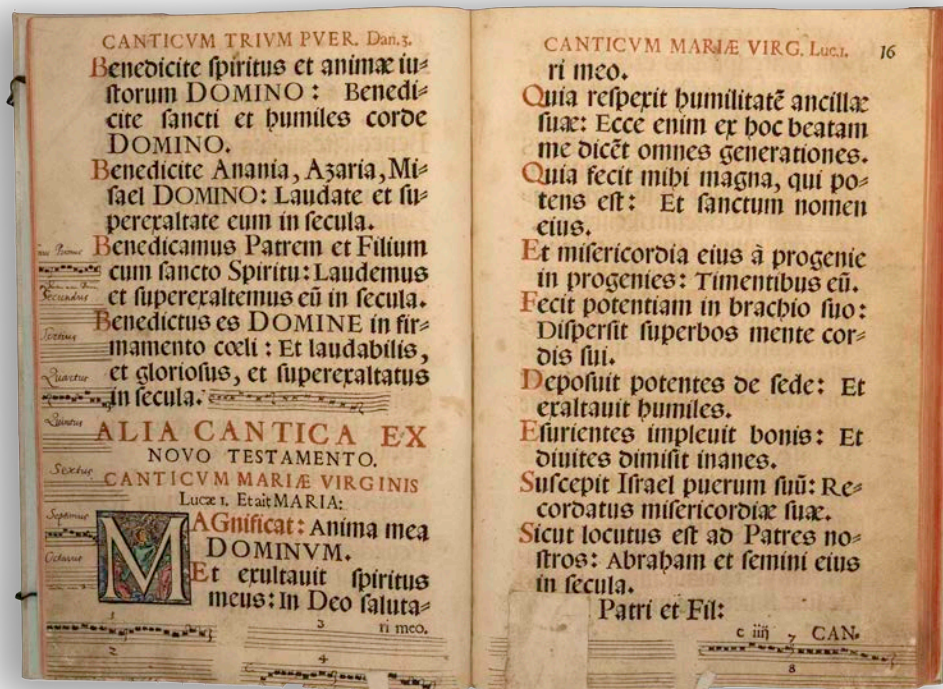 CANTICVM TRIVM PVER. Dan.3.
Benedicite ſpiritus et animæ iu⸗
ſtorum DOMINO : Benedi⸗
cite ſancti et humiles corde
DOMINO.
Benedicite Anania, Azaria, Mi⸗
ſael DOMINO: Laudate et ſu⸗
perexaltate eum in ſecula.
Benedicamus Patrem et Filium
cum ſancto Spiritu: Laudemus
et ſuperexaltemus eū in ſecula.
Benedictus es DOMINE in fir⸗
mamento cœli : Et laudabilis,
et glorioſus, et ſuperexaltatus
in ſecula.
Secundus
Tertius
Quartus
Quintus
Sextus
Septimus
Octavus
ALIA CANTICA EX
NOVO TESTAMENTO.
CANTICVM MARIÆ VIRGINIS
Lucæ 1. Et ait MARIA:
MAGnificat: Anima mea
DOMINVM.
Et exultauit ſpiritus
meus: In Deo ſaluta⸗
ri meo.
1
2
3
4
CANTICVM MARIÆ VIRG. Luc.1. 16
ri meo.
Quia reſpexit humilitatē ancillæ
ſuæ: Ecce enim ex hoc beatam
me dicēt omnes generationes.
Quia fecit mihi magna, qui po⸗
tens eſt: Et ſanctum nomen
eius.
Et miſericordia eius à progenie
in progenies: Timentibus eū.
Fecit potentiam in brachio ſuo:
Diſperſit ſuperbos mente cor⸗
dis ſui.
Depoſuit potentes de ſede: Et
exaltauit humiles.
Eſurientes impleuit bonis: Et
diuites dimiſit inanes.
Suſcepit Iſrael puerum ſuū: Re⸗
cordatus miſericordiæ ſuæ.
Sicut locutus eſt ad Patres no⸗
ſtros: Abraham et ſemini eius
in ſecula.
Patri et Fil:
c iiij CAN⸗
7
8